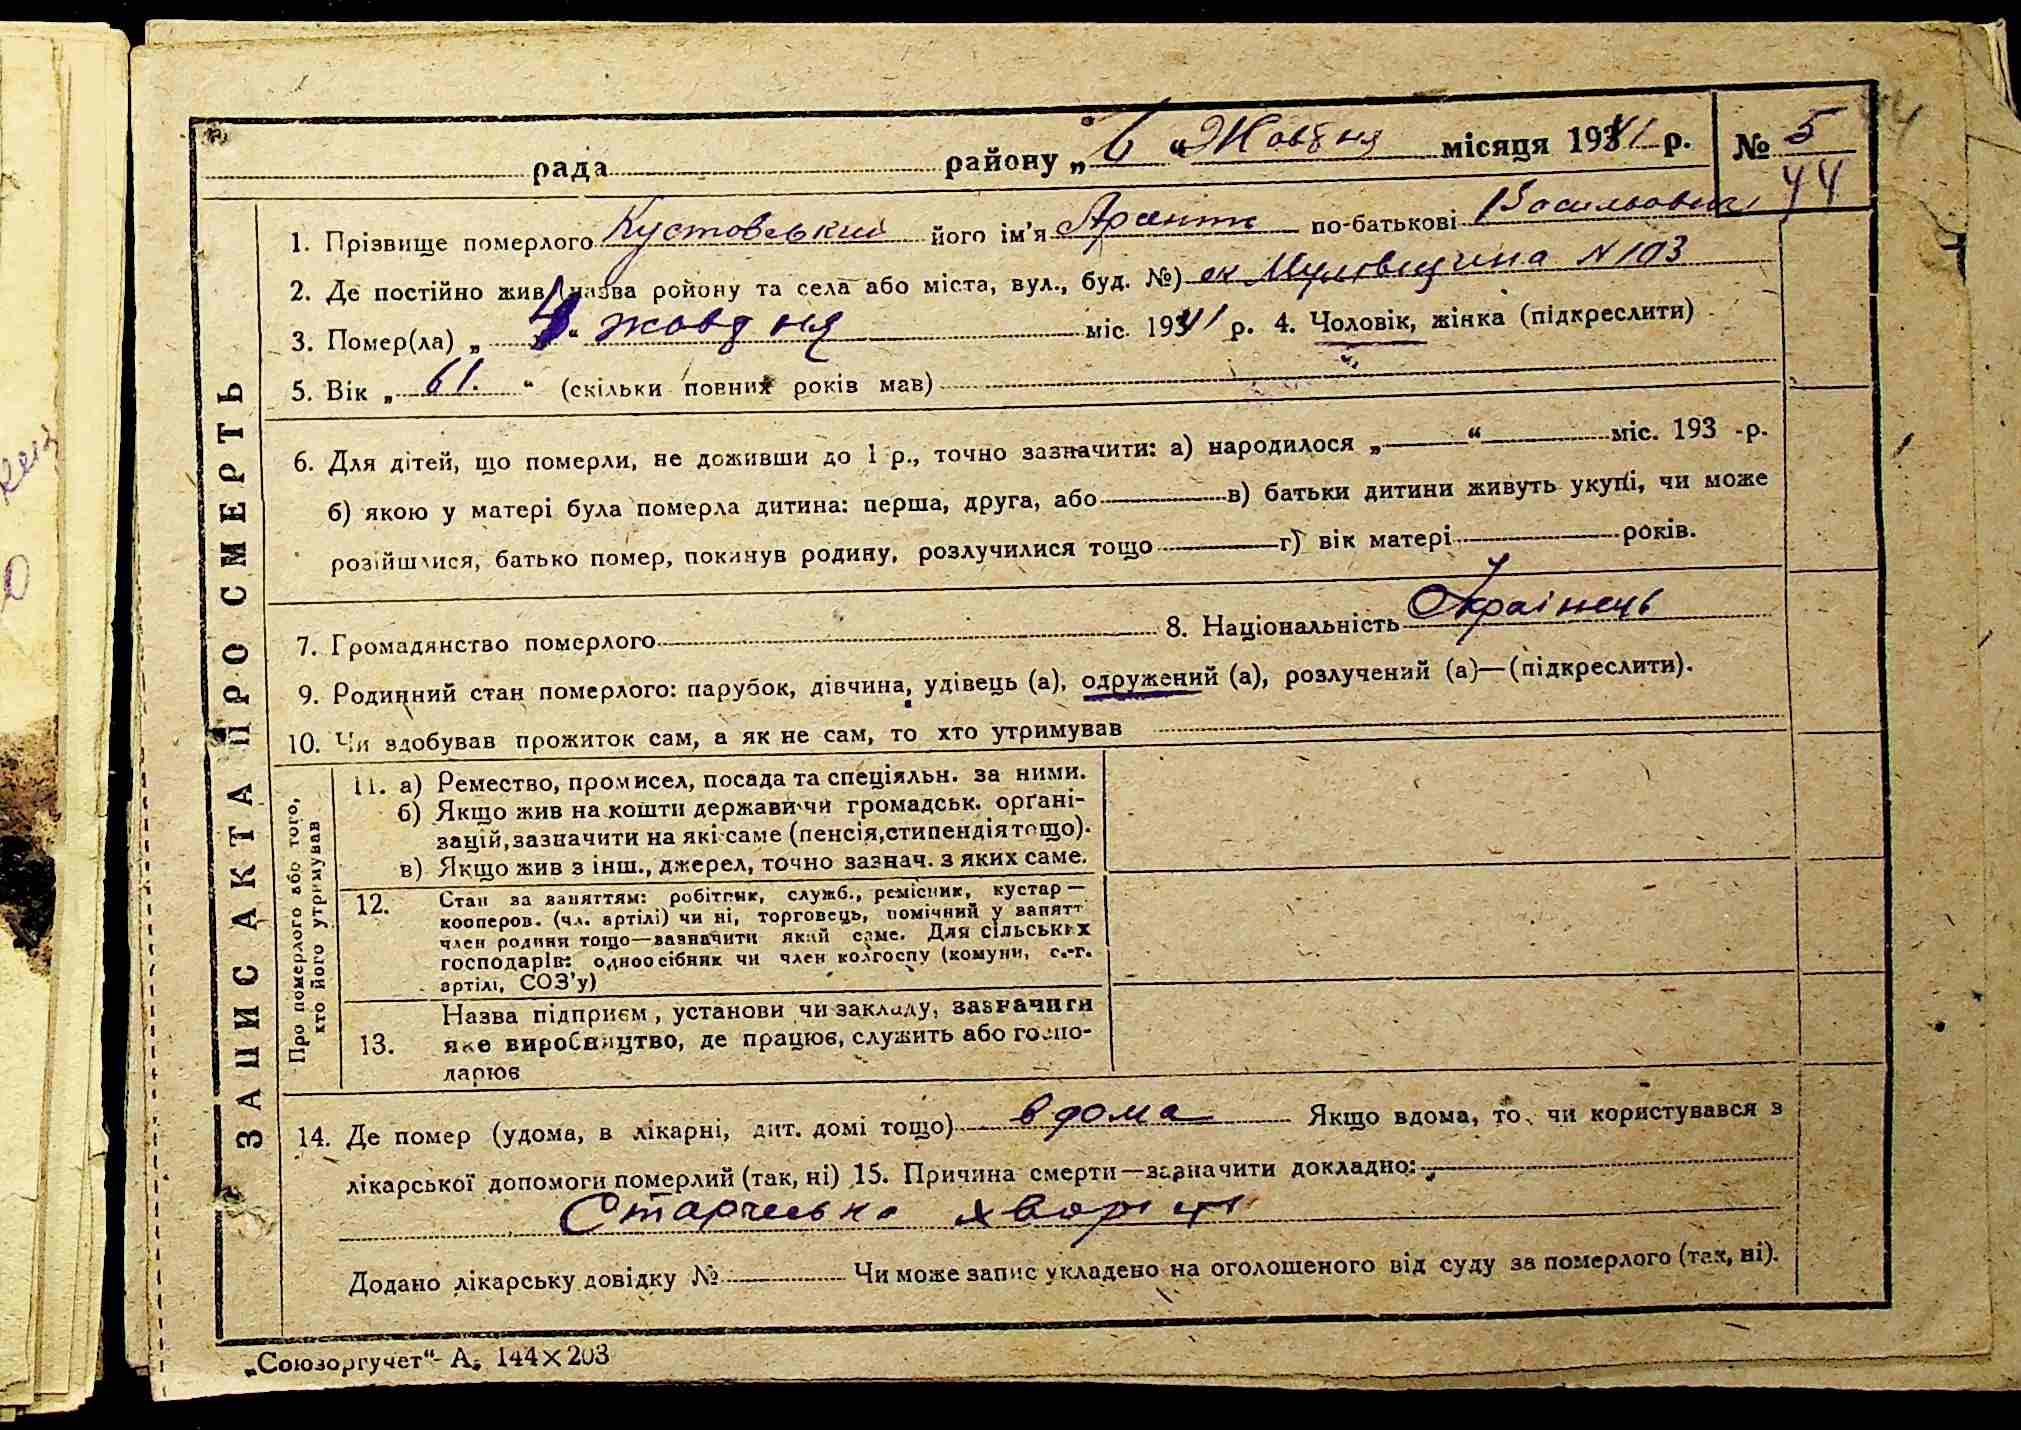 рада району „ 6 “ Жовтня місяця 1941 р. № 5
44
ЗАПИС АКТА ПРО СМЕРТЬ
1. Прізвище померлого Кустовський його ім'я по-батькові
2. Де постійно жив (назва ройону та села або міста, вул., буд. №) N 103
3. Помер(ла) „ “ жовтня міс. 1941 р. 4. Чоловік, жінка (підкреслити)
5. Вік „ 61. “ (скільки повних років мав)
6. Для дітей, що померли, не доживши до 1 р., точно зазначити: а) народилося „ “ міс. 193 -р.
б) якою у матері була померла дитина: перша, друга, або в) батьки дитини живуть укупі, чи може
розійшлися, батько помер, покинув родину, розлучилися тощо г) вік матері років.
7. Громадянство померлого 8. Національність Українець
9. Родинний стан померлого: парубок, дівчина, удівець (а), одружений (а), розлучений (а)—(підкреслити).
10. Чи здобував прожиток сам, а як не сам, то хто утримував
Про померлого або того,
хто його утримував
11. а) Ремество, промисел, посада та спеціяльн. за ними.
б) Якщо жив на кошти держави чи громадськ. орґані-
зацій, зазначити на які саме (пенсія, стипендія тощо).
в) Якщо жив з інш., джерел, точно зазнач. з яких саме.
12. Стан за заняттям: робітник, служб., ремісник, кустар—
кооперов. (чл. артілі) чи ні, торговець, помічний у занятт
член родини тощо—зазначити який саме. Для сільських
господарів: одноосібник чи член колгоспу (комуни, с.-г.
артілі, СОЗ'у)
Назва підприєм, установи чи закладу, зазначити
13. яке виробництво, де працює, служить або госпо-
дарює
14. Де помер (удома, в лікарні, дит. домі тощо) вдома Якщо вдома, то чи користувався з
лікарської допомоги померлий (так, ні) 15. Причина смерти—зазначити докладно:
Старческа
Додано лікарську довідку № Чи може запис укладено на оголошеного від суду за померлого (так, ні).
„Союзоргучет“- А. 144×203